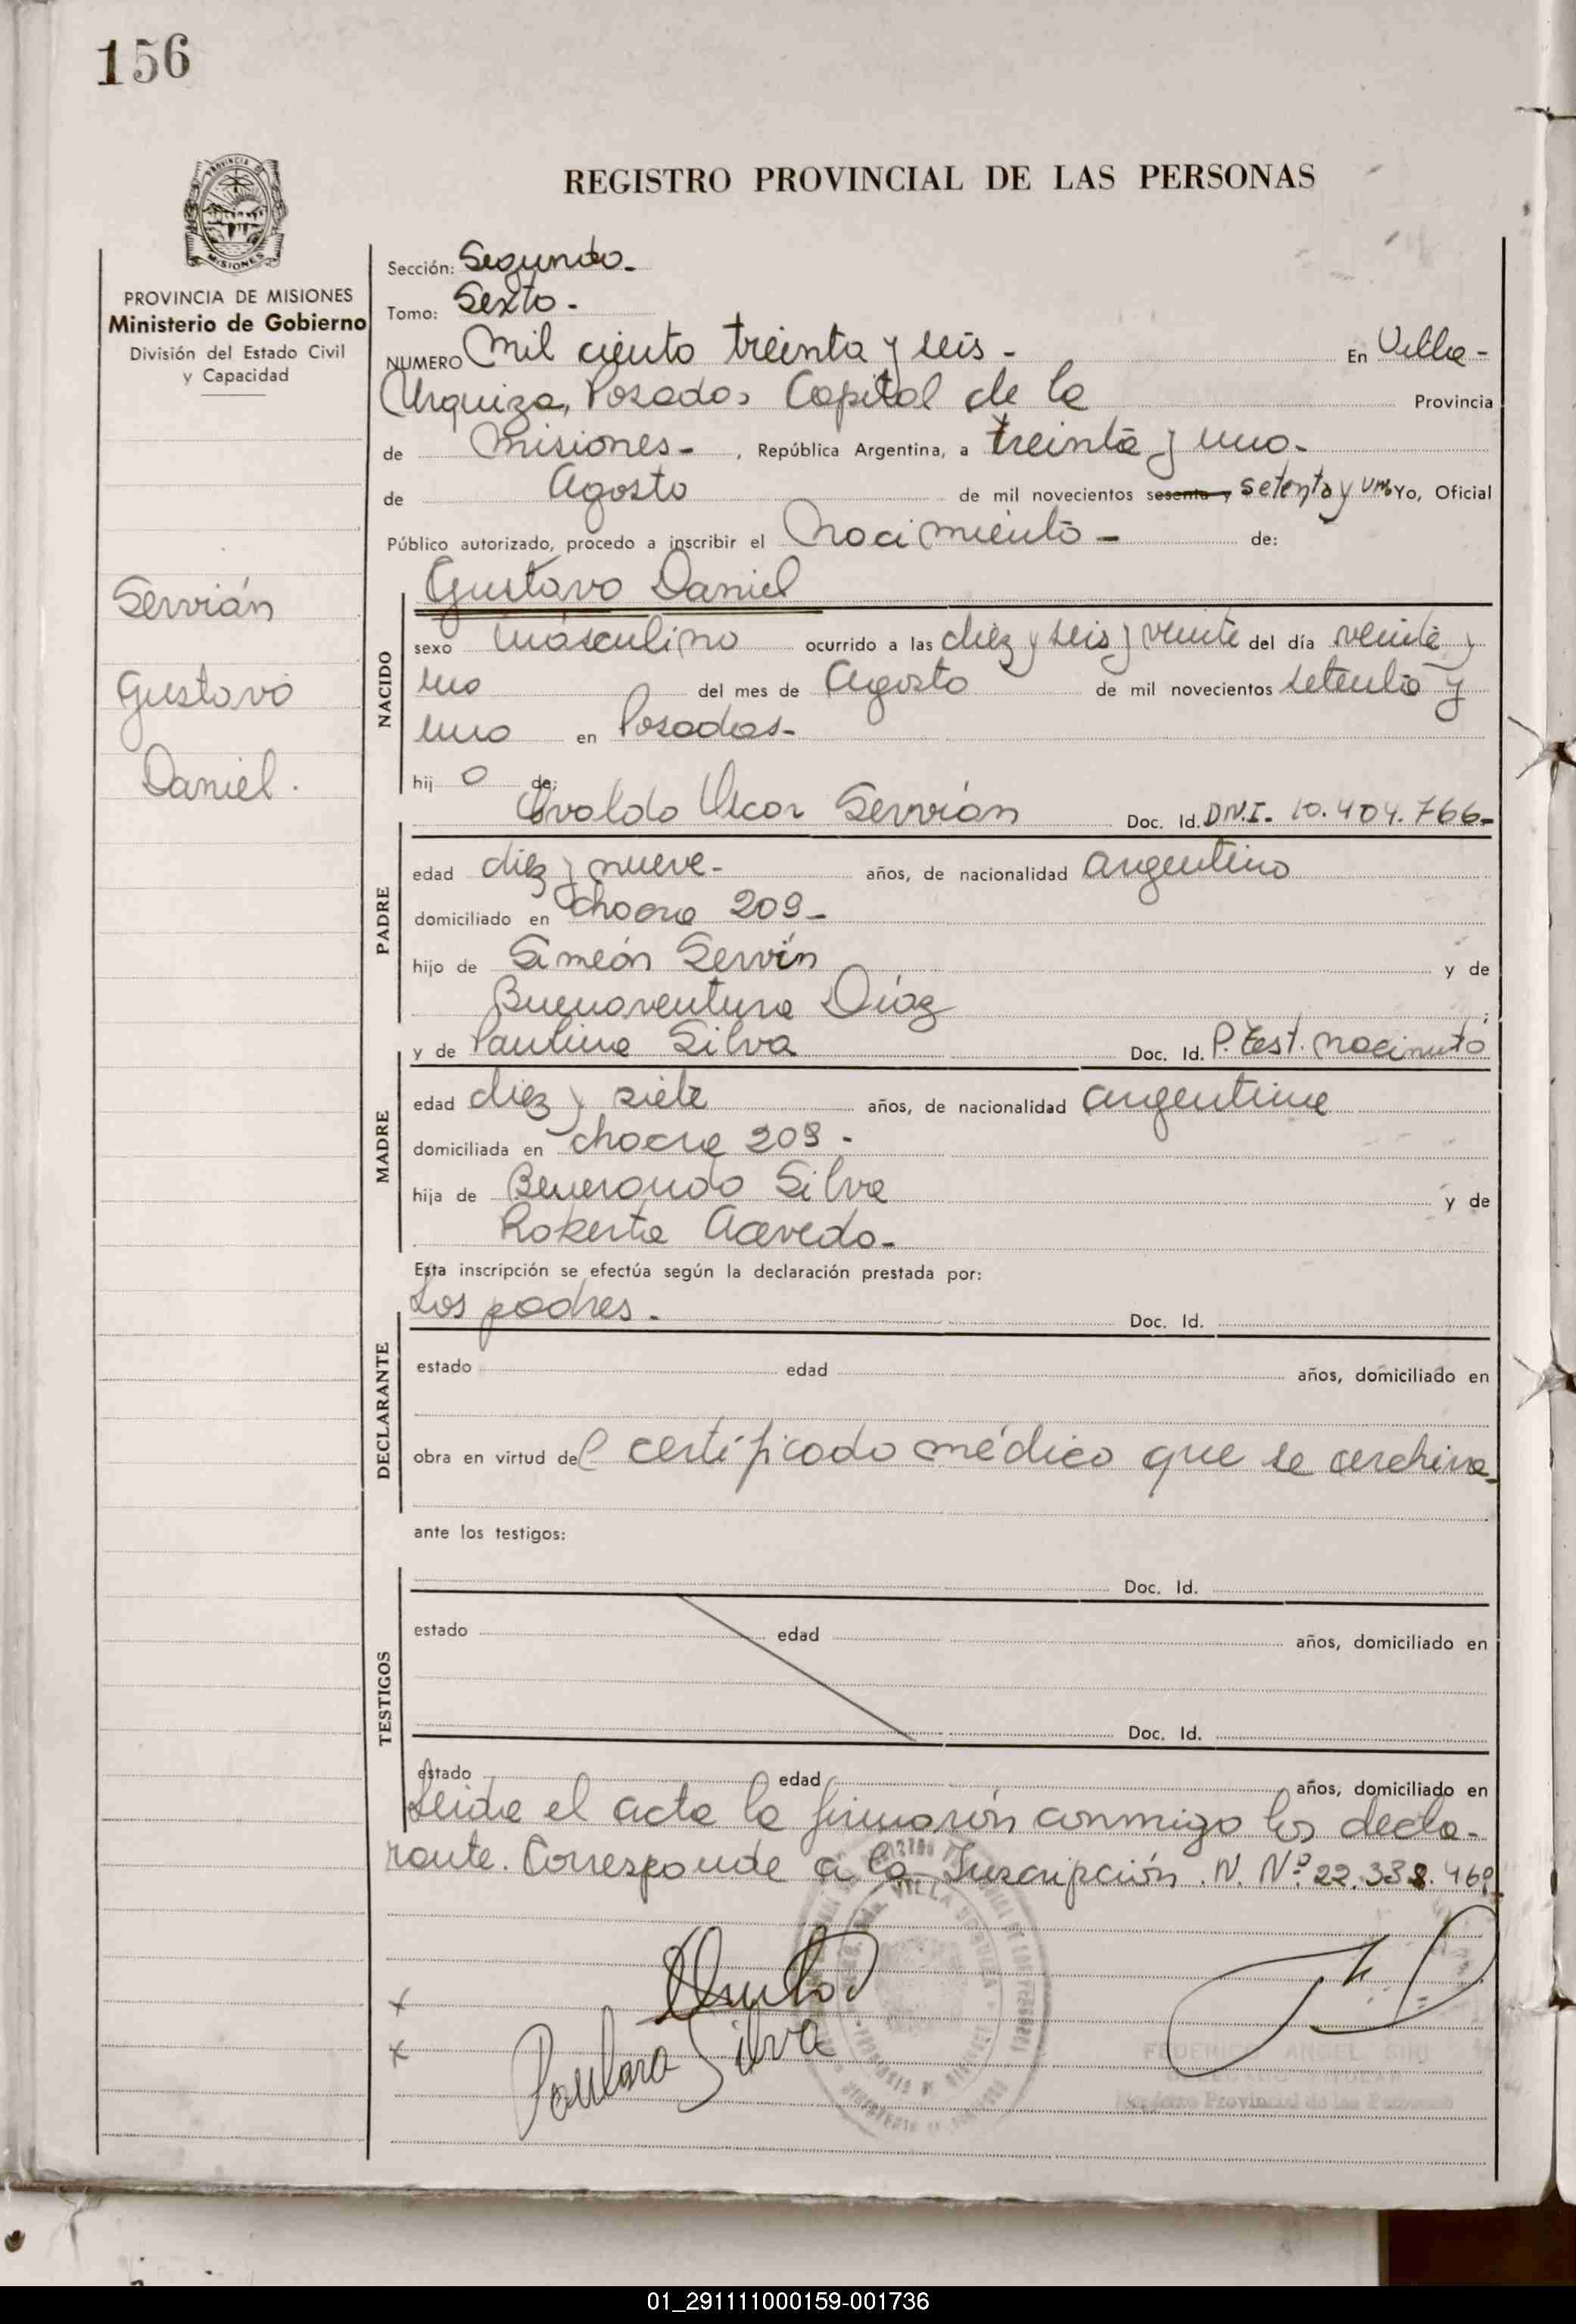 156
REGISTRO PROVINCIAL DE LAS PERSONAS
PROVINCIA DE MISIONES
MISIONES
PROVINCIA DE MISIONES
Ministerio de Gobierno
División del Estado Civil
y Capacidad
Servián
Gustavo
Daniel.
Sección: Segundo.
Tomo: Sexto.
NUMERO Mil ciento treinta y seis - En Villa -
Urquiza, Posadas Capital de la Provincia
de Misiones- , República Argentina, a treinta y uno.
de Agosto de mil novecientos sesenta y setenta y uno Yo, Oficial
Público autorizado, procedo a inscribir el Nacimiento - de:
Gustavo Daniel
NACIDO
sexo masculino ocurrido a las diez y seis y veinte del día veinte y
uno del mes de Agosto de mil novecientos setenta y
uno en Posadas-
hij o de:
Osvaldo Oscar Servián Doc. Id. D.N.I. 10.404.766-
PADRE
edad diez y nueve- años, de nacionalidad argentino
domiciliado en chacra 209-
hijo de Simeón Servín y de
Buenaventura Díaz
y de Paulina Silva Doc. Id. P. Test. Nacimto
MADRE
edad diez y siete años, de nacionalidad argentina
domiciliada en chacra 209.
hija de Silva y de
Roberta Acevedo-
Esta inscripción se efectúa según la declaración prestada por:
Los padres. Doc. Id.
DECLARANTE
estado edad años, domiciliado en
obra en virtud del certificado médico que se archiva
ante los testigos:
Doc. Id.
TESTIGOS
estado edad años, domiciliado en
Doc. Id.
estado edad años, domiciliado en
Leida el acta la firmarón conmigo los decla-
rante. Corresponde a la Inscripción. N. Nº 22.338.469
x
x Paulina Silva
VILLA URQUIZA
FEDERICO ANGEL SIRI
Registro Provincial de las Personas
01_291111000159-001736